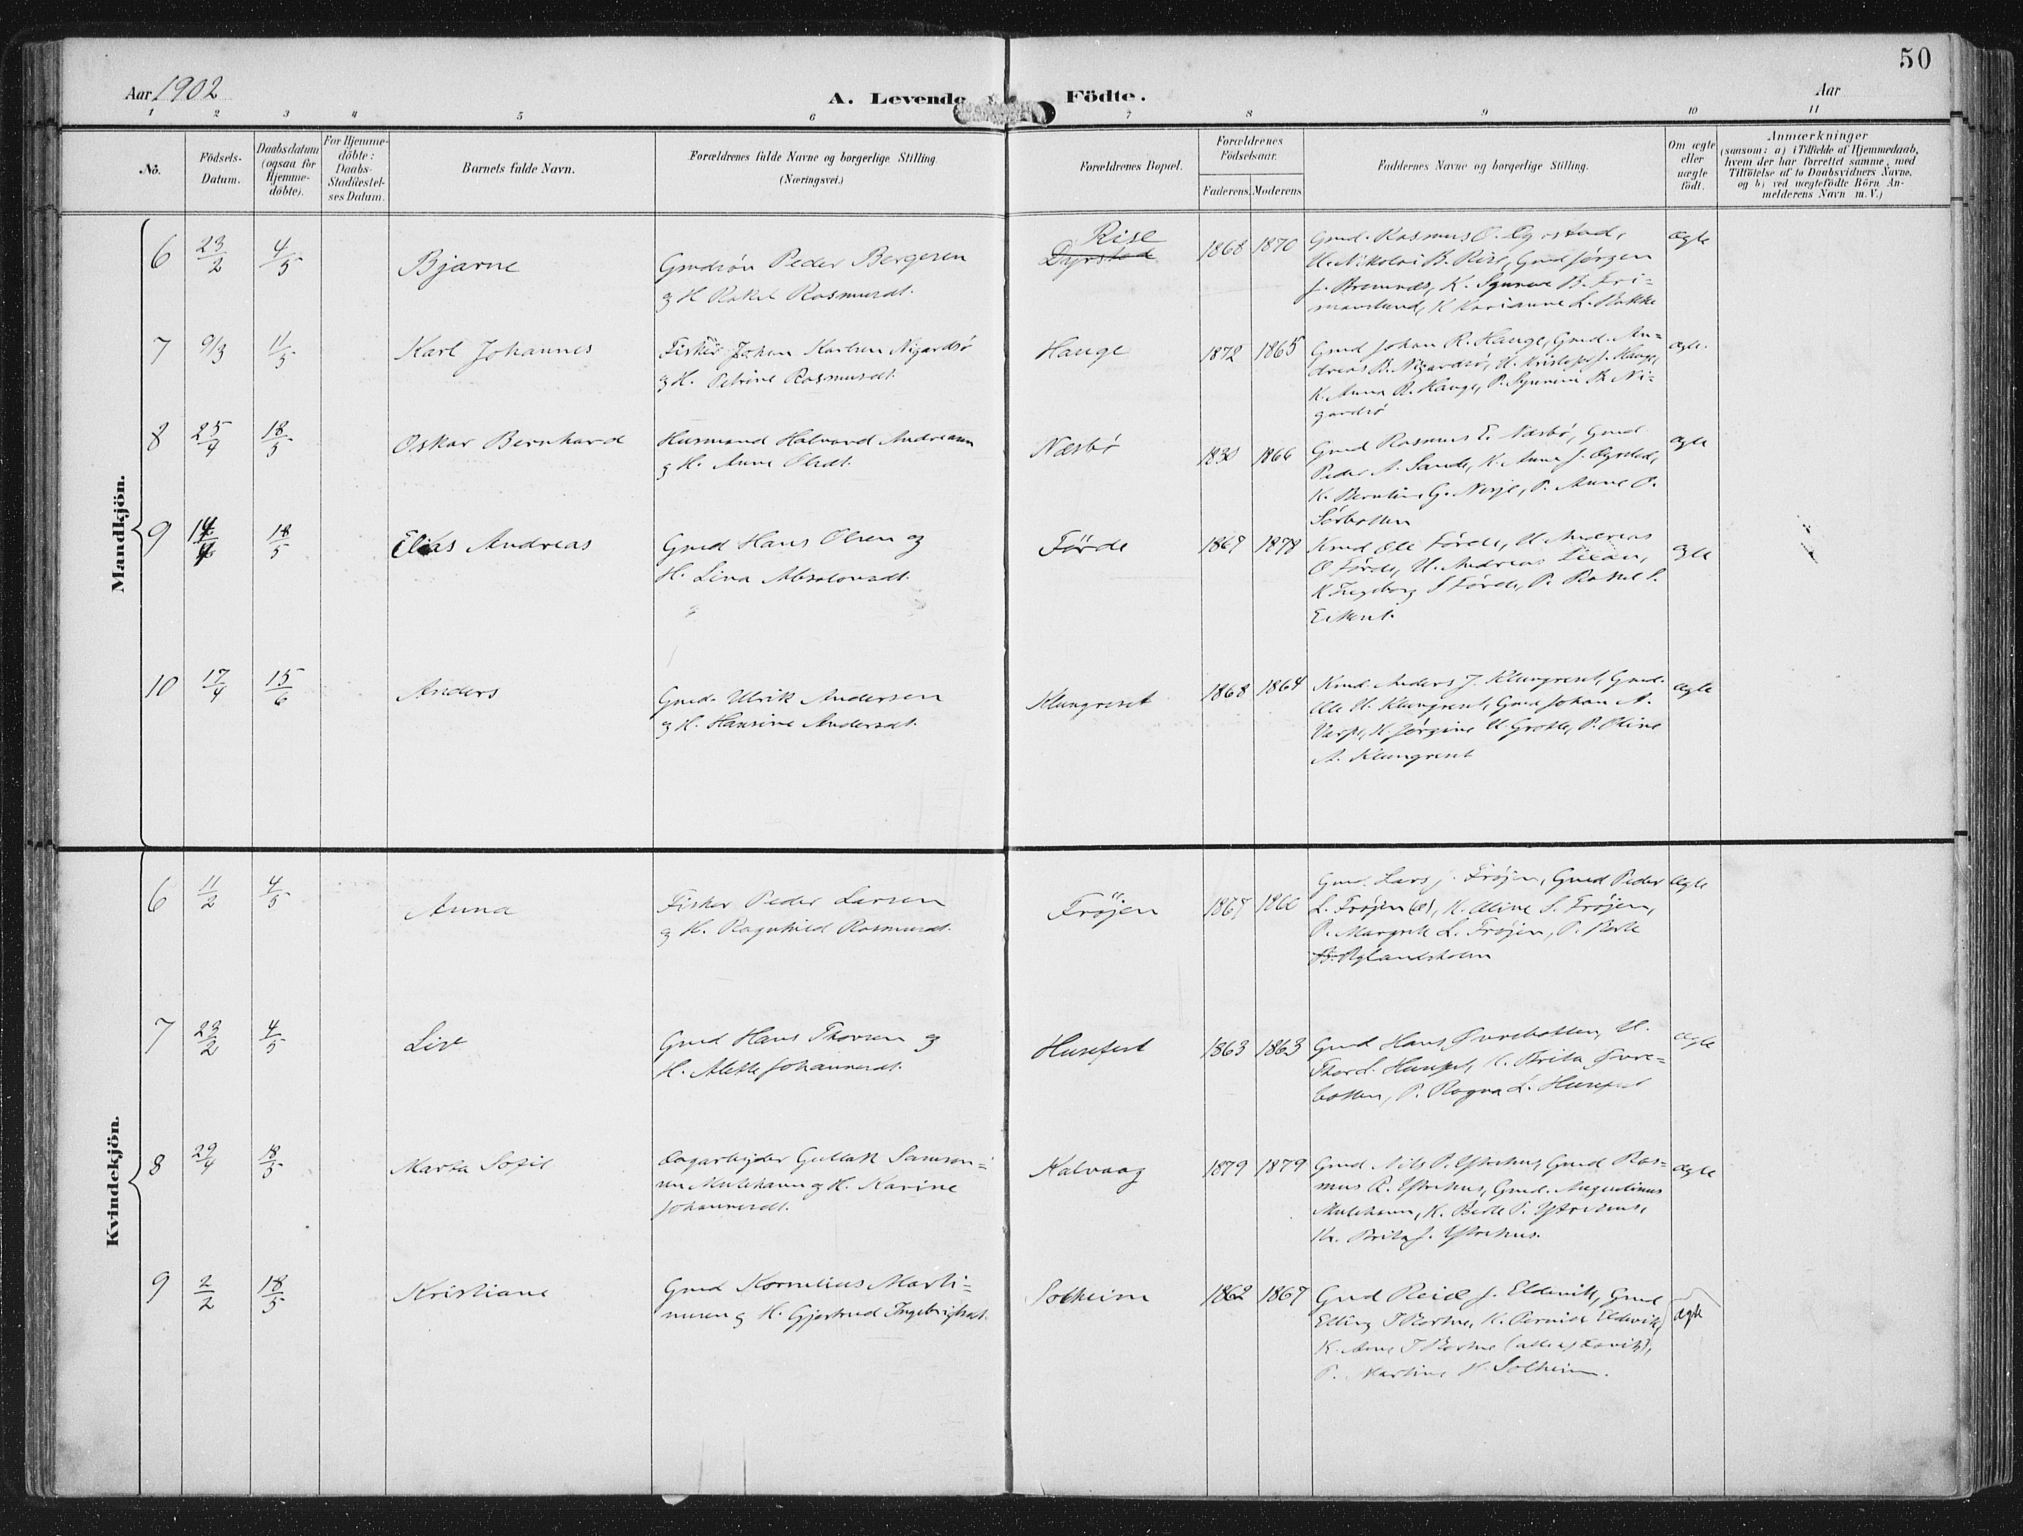 50
Aar 1902
A. Levende Födte.
Aar
1 2 3 4 5 6 7 8 9 10 11
No.
Födsels-Datum.
Daabsdatum (ogsaa for Hjemmedöbte).
For Hjemmedöbte: Daabs-Stadfæstelses Datum.
Barnets fulde Navn.
Forældrenes fulde Navne og borgerlige Stilling. (Næringsvei.)
Forældrenes Bopæl.
Forældrenes Födselsaar.
Faderens. Moderens.
Faddernes Navne og borgerlige Stilling.
Om ægte eller uægte födt.
Anmærkninger
(saasom: a) i Tilfælde af Hjemmedaab,
hvem der har forrettet samme, med
Tilföielse af to Daabsvidners Navne,
og b) ved uægtefödte Börn An-
melderens Navn m. V.)
Mandkjön.
6 23/2 4/5 Bjarne
Gmdsön Peder Bergesen
og H. Rakel Rasmusdt.
Rise
Dyrstad
1868 1870
Gmd. Rasmus O. Dyrstad,
U. Nikolai B. Rise, Gmd Jörgen
J. Bremnes, K. Synneve B. Fri-
manslund, K Karianne L. Hokke
ægte
7 9/3 11/5 Karl Johannes
Fisker Johan Karlsen Nigardsö
og H. Petrine Rasmusdt.
Hauge
1872 1865
Gmd Johan R. Hauge, Gmd. An-
dreas B. Nigardsö, U. Kristoffer J. Hauge,
K. Anna R. Hauge, P. Synneve B. Ni-
gardsö
ægte.
8 25/4 18/5 Oskar Bernhard
Husmand Halvard Andreassen
og H. Anne Olsdt.
Næsbö
1830 1866
Gmd Rasmus E. Næsbö, Gmd
Peder A. Sande, K. Anna J. Dyrstad,
K. Berntine G. Nesje, P. Anne P.
Sörbotten
ægte
9 14/4 18/5 Elias Andreas
Gmd Hans Olsen og
H. Lina Absalonsdt.
Förde
1867 1878
Kmd Ole Förde, U Andreas
O Förde, U. Andreas
K Ingeborg S Förde, P. Rakel S.
Eikeset.
ægte
10 17/4 15/6 Anders
Gmd. Ulrik Andersen
og H. Hansine Andersdt.
Klungreset
1868 1864
Kmd. Anders J. Klungreset, Gmd.
Ole U. Klungreset, Gmd Johan A.
Varpe, K. Jörgine U. Grotle, P. Oline
A. Klungreset
ægte
Kvindekjön.
6 11/2 4/5 Anna
Fisker Peder Larsen
og H. Ragnhild Rasmusdt.
Fröjen
1867 1866
Gmd. Lars J. Fröjen, Gmd Peder
L. Fröjen (æ), K. Oline S. Fröjen,
P. Margrete L. Fröjen, P. Berte
Rylandsholm
ægte
7 23/2 4/5 Liv
Gmd Hans Thorsen og
H. Alette Johannesdt.
Husefest
1863 1863
Gmd Hans Övrebotten, U.
Thor L. Husefest, K. Brita Övre-
botten, P. Ragna L. Husefest
ægte
8 29/4 18/5 Marta Sofie
Dagarbejder Gullak Samson-
sen Mulehamn og H. Karine
Johannesdt.
Kalvaag
1879 1879
Gmd Nils P. Ystehus, Gmd Ras-
mus R. Ystehus, Gmd. Augustinus
Mulehamn, K. Berte P. Ystehus,
K. Brita J. Ystehus.
ægte
9 2/2 18/5 Kristiane
Gmd Kornelius Marti-
nusen og H. Gjertrud Ingebrigtsdt.
Solheim
1862 1867
Gmd Peder J. Eldevik, Gmd
Elling T. K. Pernille Eldevik,
K. Anne T.
P. Martine H. Solheim.
ægte